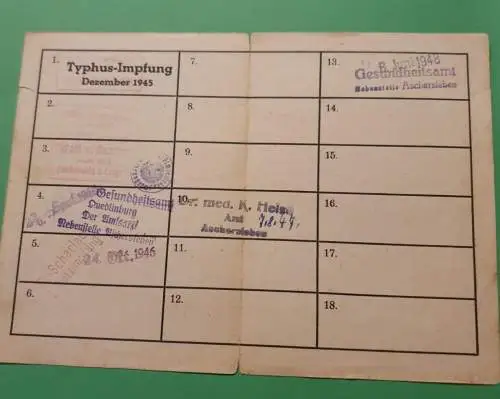 1.
Typhus-Impfung
Dezember 1945
2.
3.
4.
Gesundheitsamt
Quedlinburg
Der Amtsarzt
Nebenstelle Aschersleben
5.
24. Okt. 1946
6.
7.
8.
9.
10.
Dr. med. K. Heine
Amt
Aschersleben
7.8.47.
11.
12.
13.
8. Juni 1948
Gesundheitsamt
Nebenstelle Aschersleben
14.
15.
16.
17.
18.